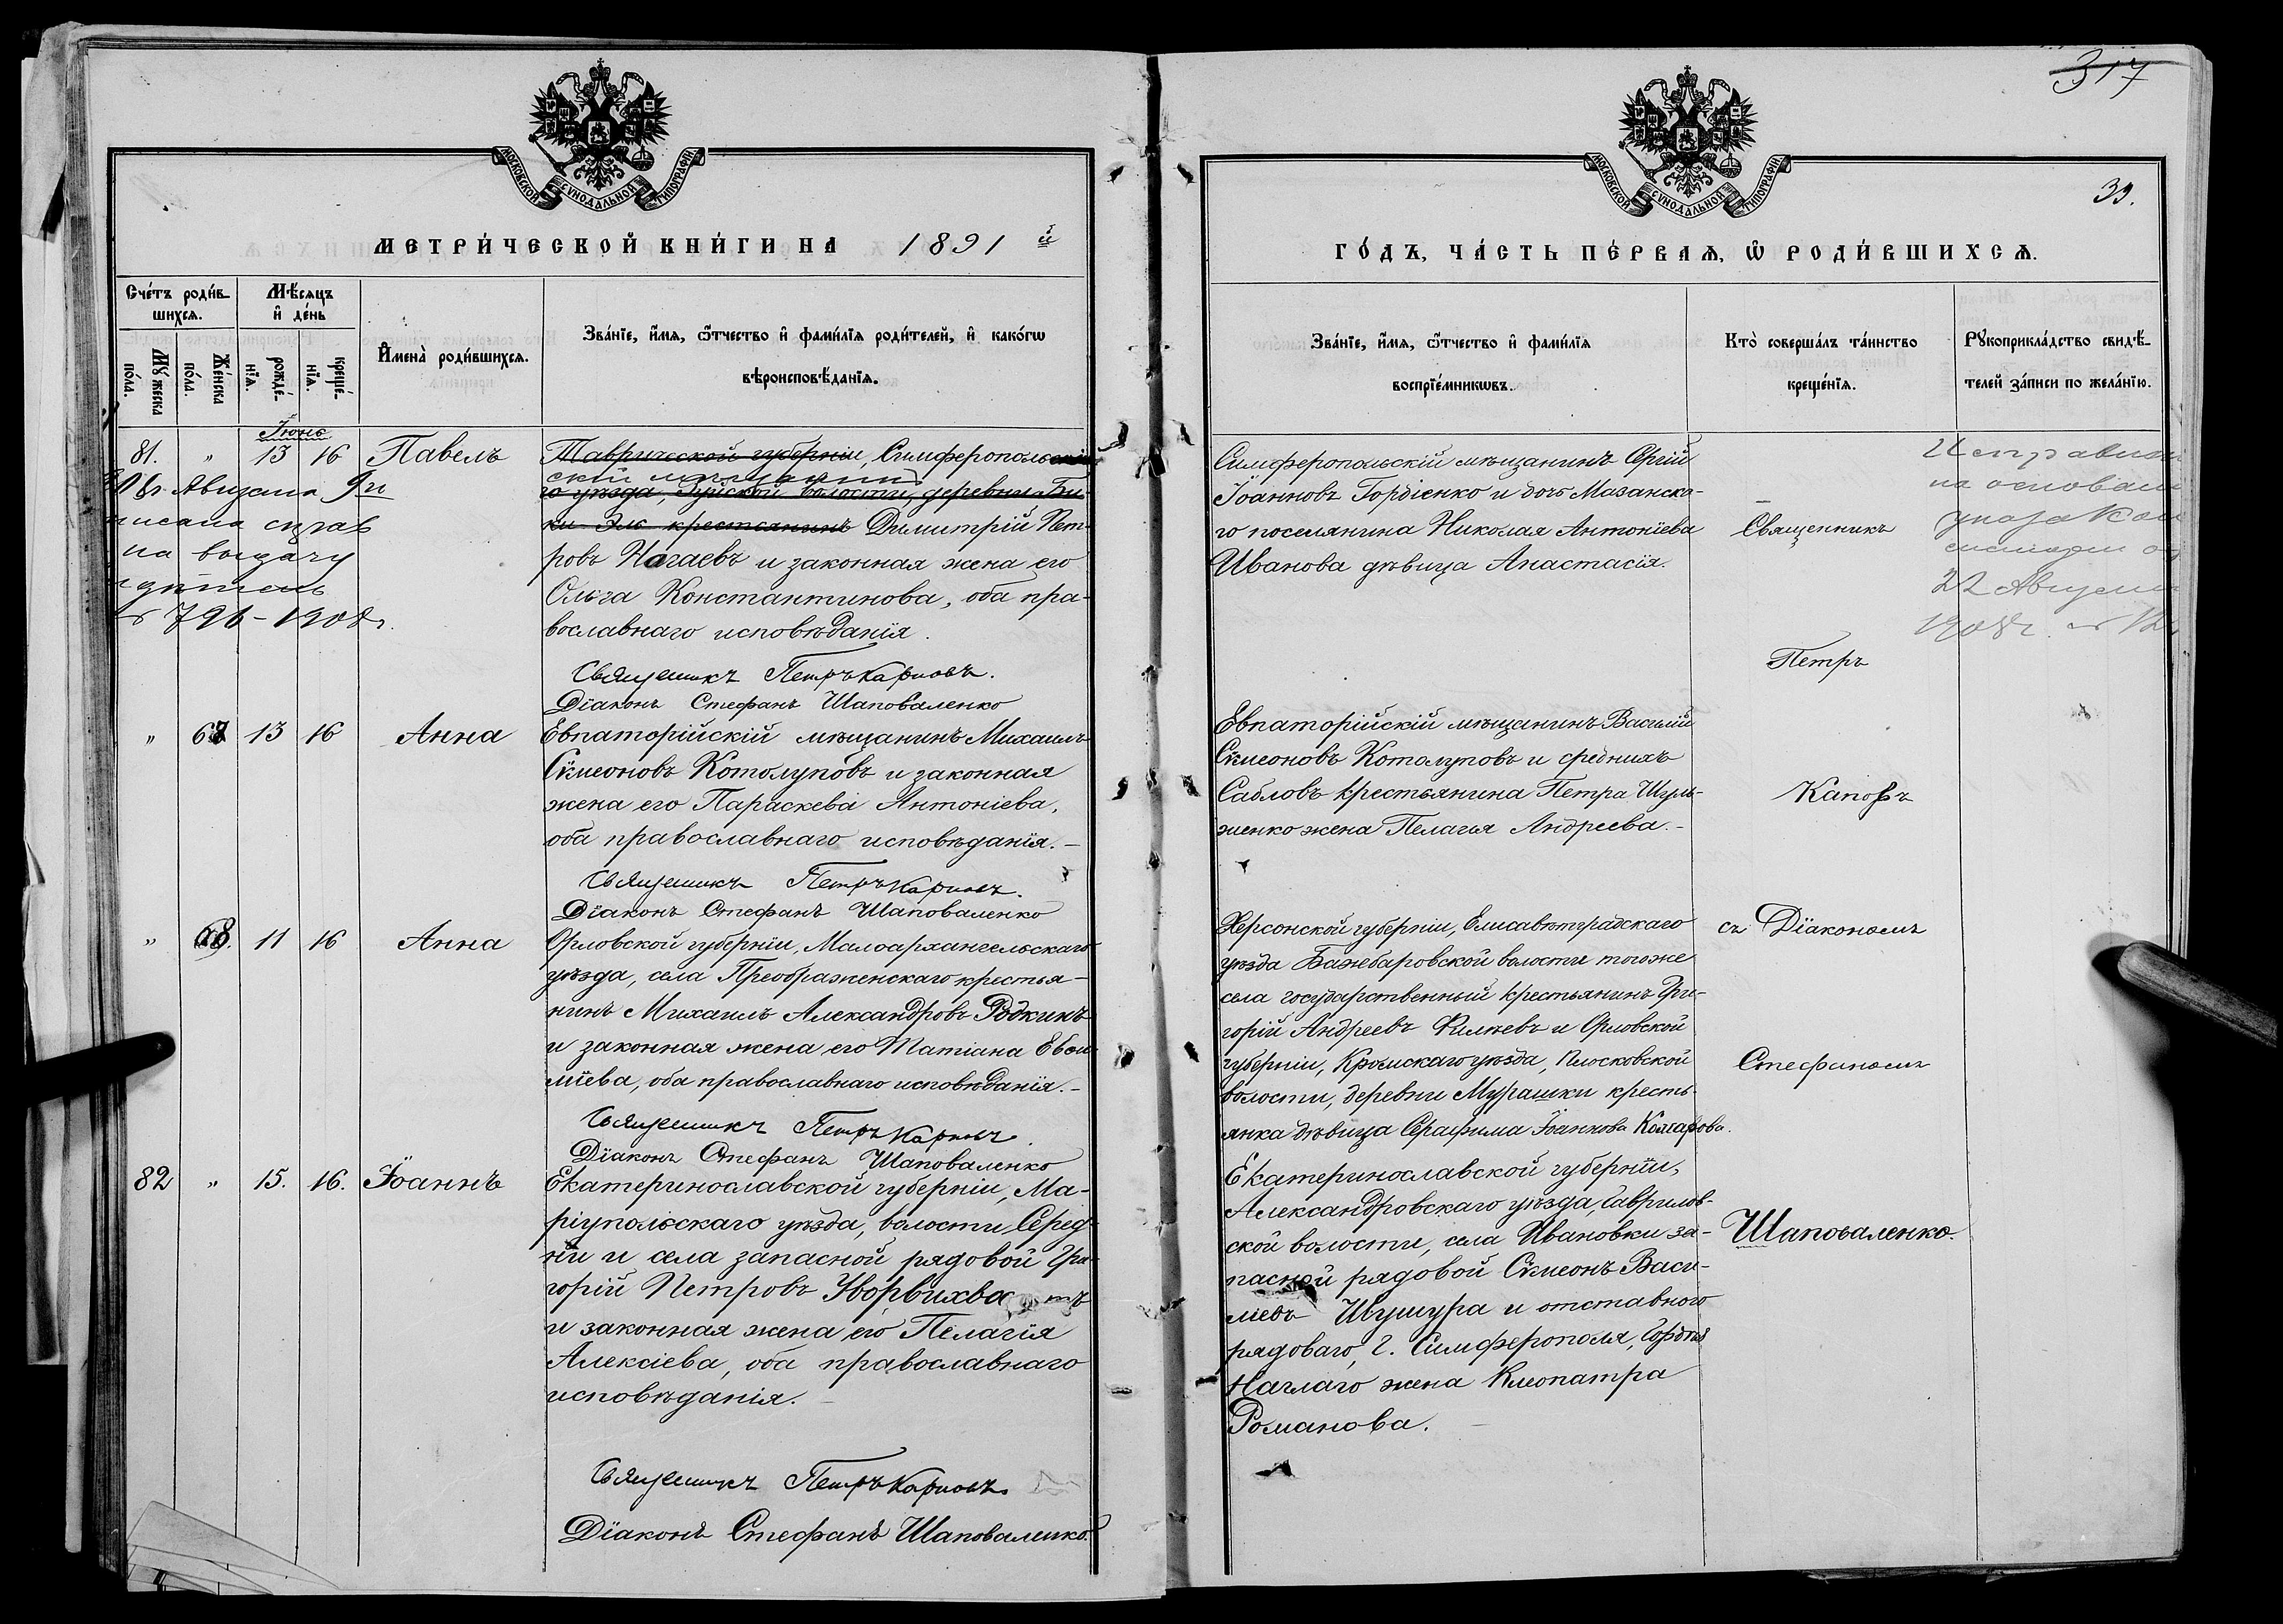 317
39.
МОСКОВСКОЙ СѴНОДАЛЬНОЙ ТИПОГРАФІИ
МОСКОВСКОЙ СѴНОДАЛЬНОЙ ТИПОГРАФІИ
МЕТРИ́ЧЕСКОЙ КНИ́ГИ НА 1891 й
ГО́ДЪ, ЧА́СТЬ ПЕ́РВАѦ, Ѡ҆ РОДИ́ВШИХСѦ.
Сче́тъ роди́в-
шихсѧ.
Мѣ́сѧцъ
и҆ де́нь
Му́жеска
по́ла.
Же́нска
по́ла.
рожде́-
нїѧ.
креще́-
нїѧ.
И҆мена̀ роди́вшихсѧ.
Зва́нїе, и҆́мѧ, ѻ҆́тчество и҆ фами́лїѧ роди́телей, и҆ како́гѡ
вѣроисповѣ́данїѧ.
Зва́нїе, и҆́мѧ, ѻ҆́тчество и҆ фами́лїѧ
воспрїе́мникѡвъ.
Кто̀ соверша́лъ та́инство
креще́нїѧ.
Рꙋкоприкла́дство свидѣ́-
телей за́писи по жела́нїю.
Іюнь
81. " 13 16 Павелъ
Таврической губерніи, Симферополь-
скій мѣщанинъ
го уѣзда, волости, деревни Би-
крестьянинъ Димитрій Пет-
ровъ Нагаевъ и законная жена его
Ольга Константинова, оба пра-
вославнаго исповѣданія.
Священникъ Петръ Карповъ.
Діаконъ Стефанъ Шаповаленко
08г. Августа 9
писана справ
на выдачу
№ 796-1908г.
Симферопольскій мѣщанинъ Сергій
Іоанновъ Гордіенко и дочь Мазанска-
го поселянина Николая Антоніева
Иванова дѣвица Анастасія.
Исправлен
на основан
указа Кон
систоріи от
22 Август
1908г. № 12
" 67 13 16 Анна
Евпаторійскій мѣщанинъ Михаилъ
Сѵмеоновъ Котолуповъ и законная
жена его Параскева Антоніева,
оба православнаго исповѣданія.-
Священникъ Петръ Карповъ.
Діаконъ Стефанъ Шаповаленко
Евпаторійскій мѣщанинъ Василій
Сѵмеоновъ Котолуповъ и среднихъ
Сабловъ крестьянина Петра Шуль-
женко жена Пелагія Андреева.-
" 68. 11 16 Анна
Орловской губерніи, Малоархангельскаго
уѣзда, села Преображенскаго крестья-
нинъ Михаилъ Александровъ Родкинъ
и законная жена его Татіана Евѳи-
міева, оба православнаго исповѣданія.-
Священникъ Петръ Карповъ.
Діаконъ Стефанъ Шаповаленко
Херсонской губерніи, Елисаветградскаго
уѣзда волости тогоже
села государственный крестьянинъ Гри-
горій Андреевъ и Орловской
губерніи, Кромскаго уѣзда, Плосковской
волости, деревни Мурашки кресть-
янка дѣвица Серафима Іоаннова
82 " 15. 16. Іоаннъ
Екатеринославской губерніи, Ма-
ріупольскаго уѣзда, волости, Серед-
ни и села запасной рядовой Гри-
горій Петровъ
и законная жена его Пелагія
Алексіева, оба православнаго
исповѣданія.
Священникъ Петръ Карповъ.
Діаконъ Стефанъ Шаповаленко.
Екатеринославской губерніи,
Александровскаго уѣзда, Гаврилов-
ской волости, села Ивановки за-
пасной рядовой Сѵмеонъ Васи-
ліевъ и отставного
рядоваго, г. Симферополя,
Наглаго жена Клеопатра
Романова.
Священникъ
Петръ
Карповъ
съ Діакономъ
Стефаномъ
Шаповаленко.